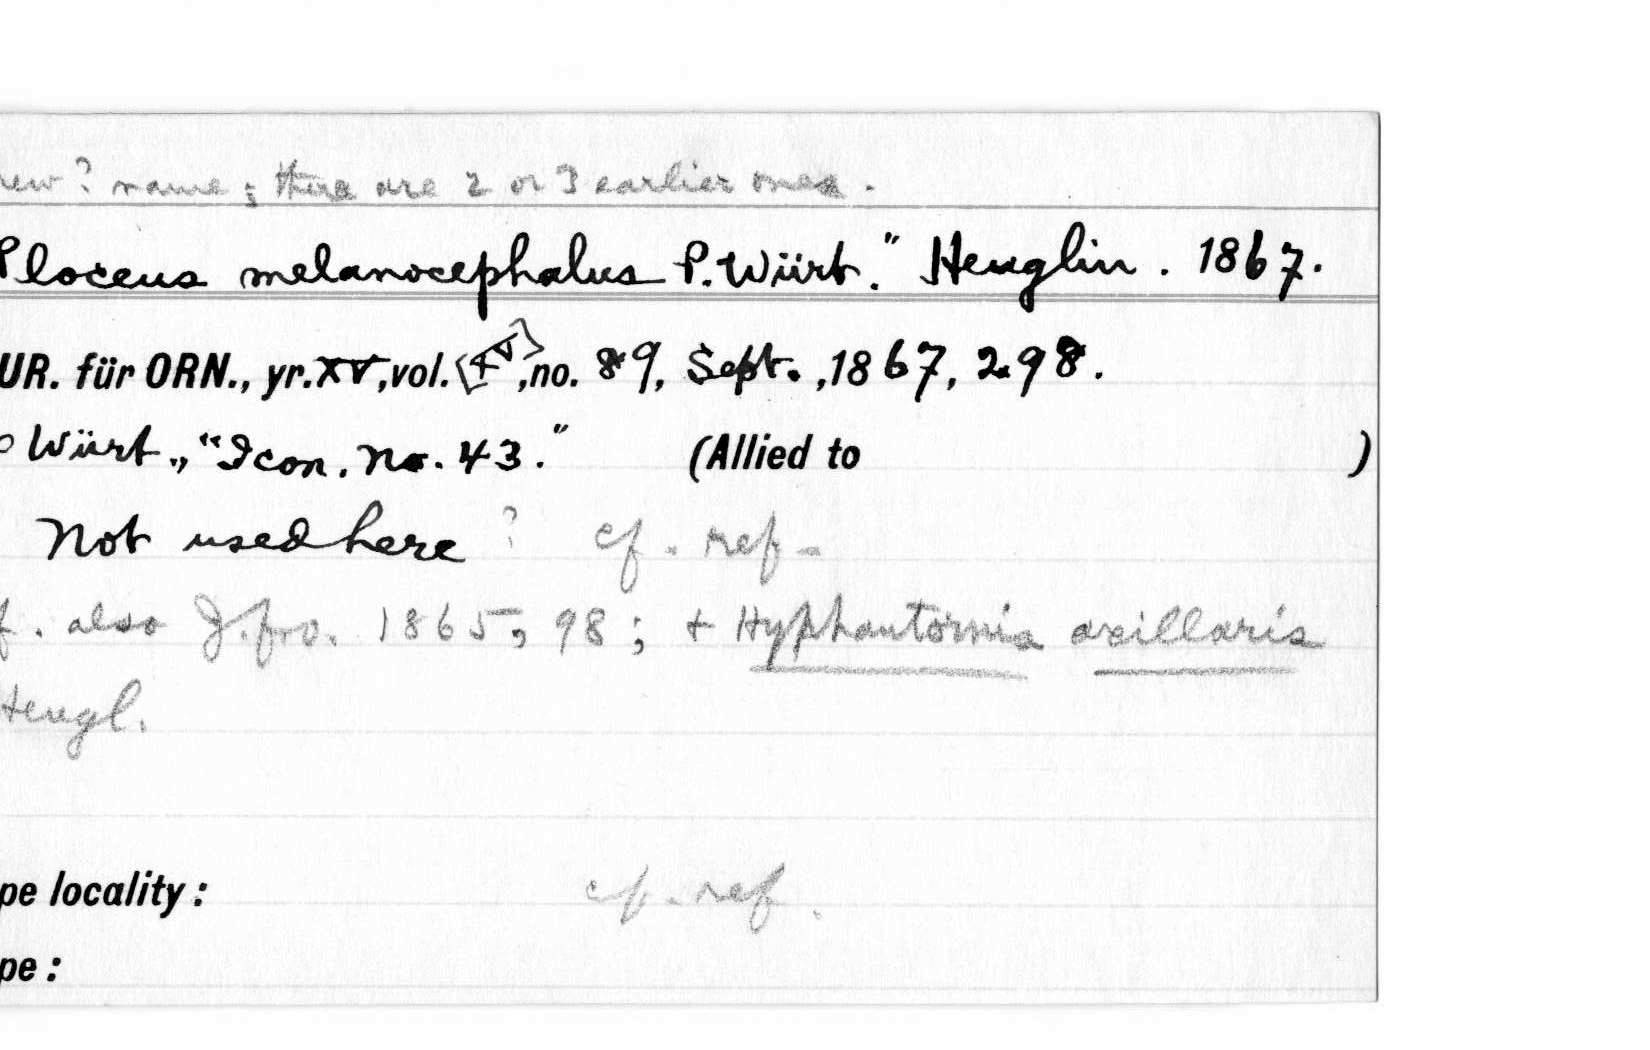 new? name; there are 2 or 3 earlier ones.
Ploceus melanocephalus P. Würt." Heuglin. 1867.
UR. für ORN., yr. XV, vol. <XV>, no. 89, Sept., 1867, 298.
Würt., "Icon. no. 43." (Allied to )
Not used here ? cf. ref.
f. also J. fro. 1865, 98; + Hyphantornis axillaris
Heugl.
pe locality: cf. ref.
pe: